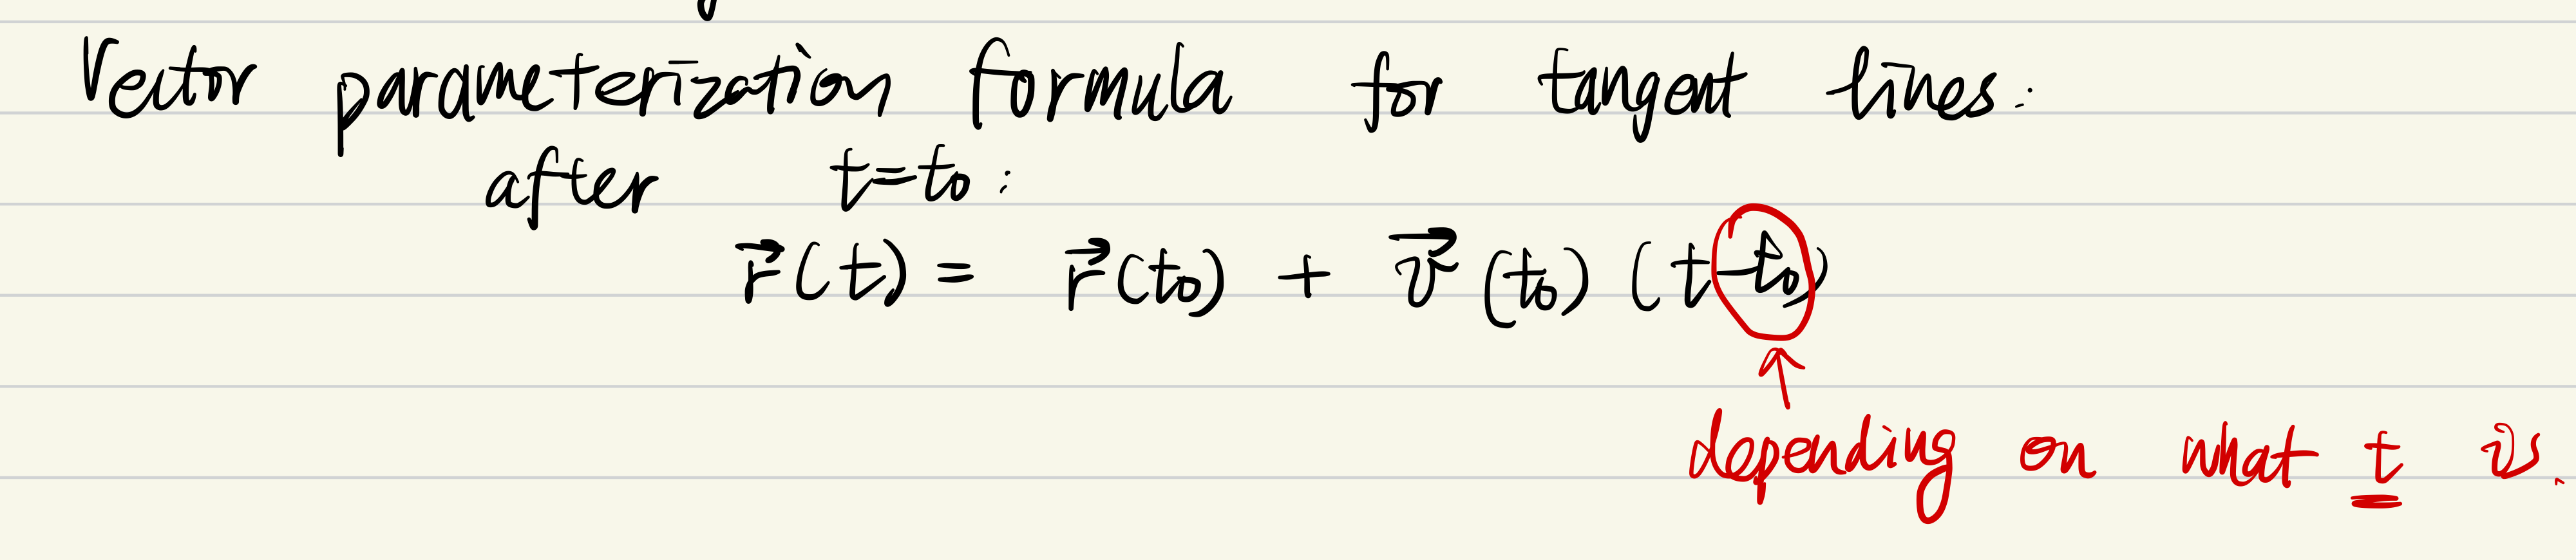 Vector parameterization formula for tangent lines:
after t=t₀:
r⃗(t) = r⃗(t₀) + v⃗(t₀)(t-t₀)
depending on what t is.